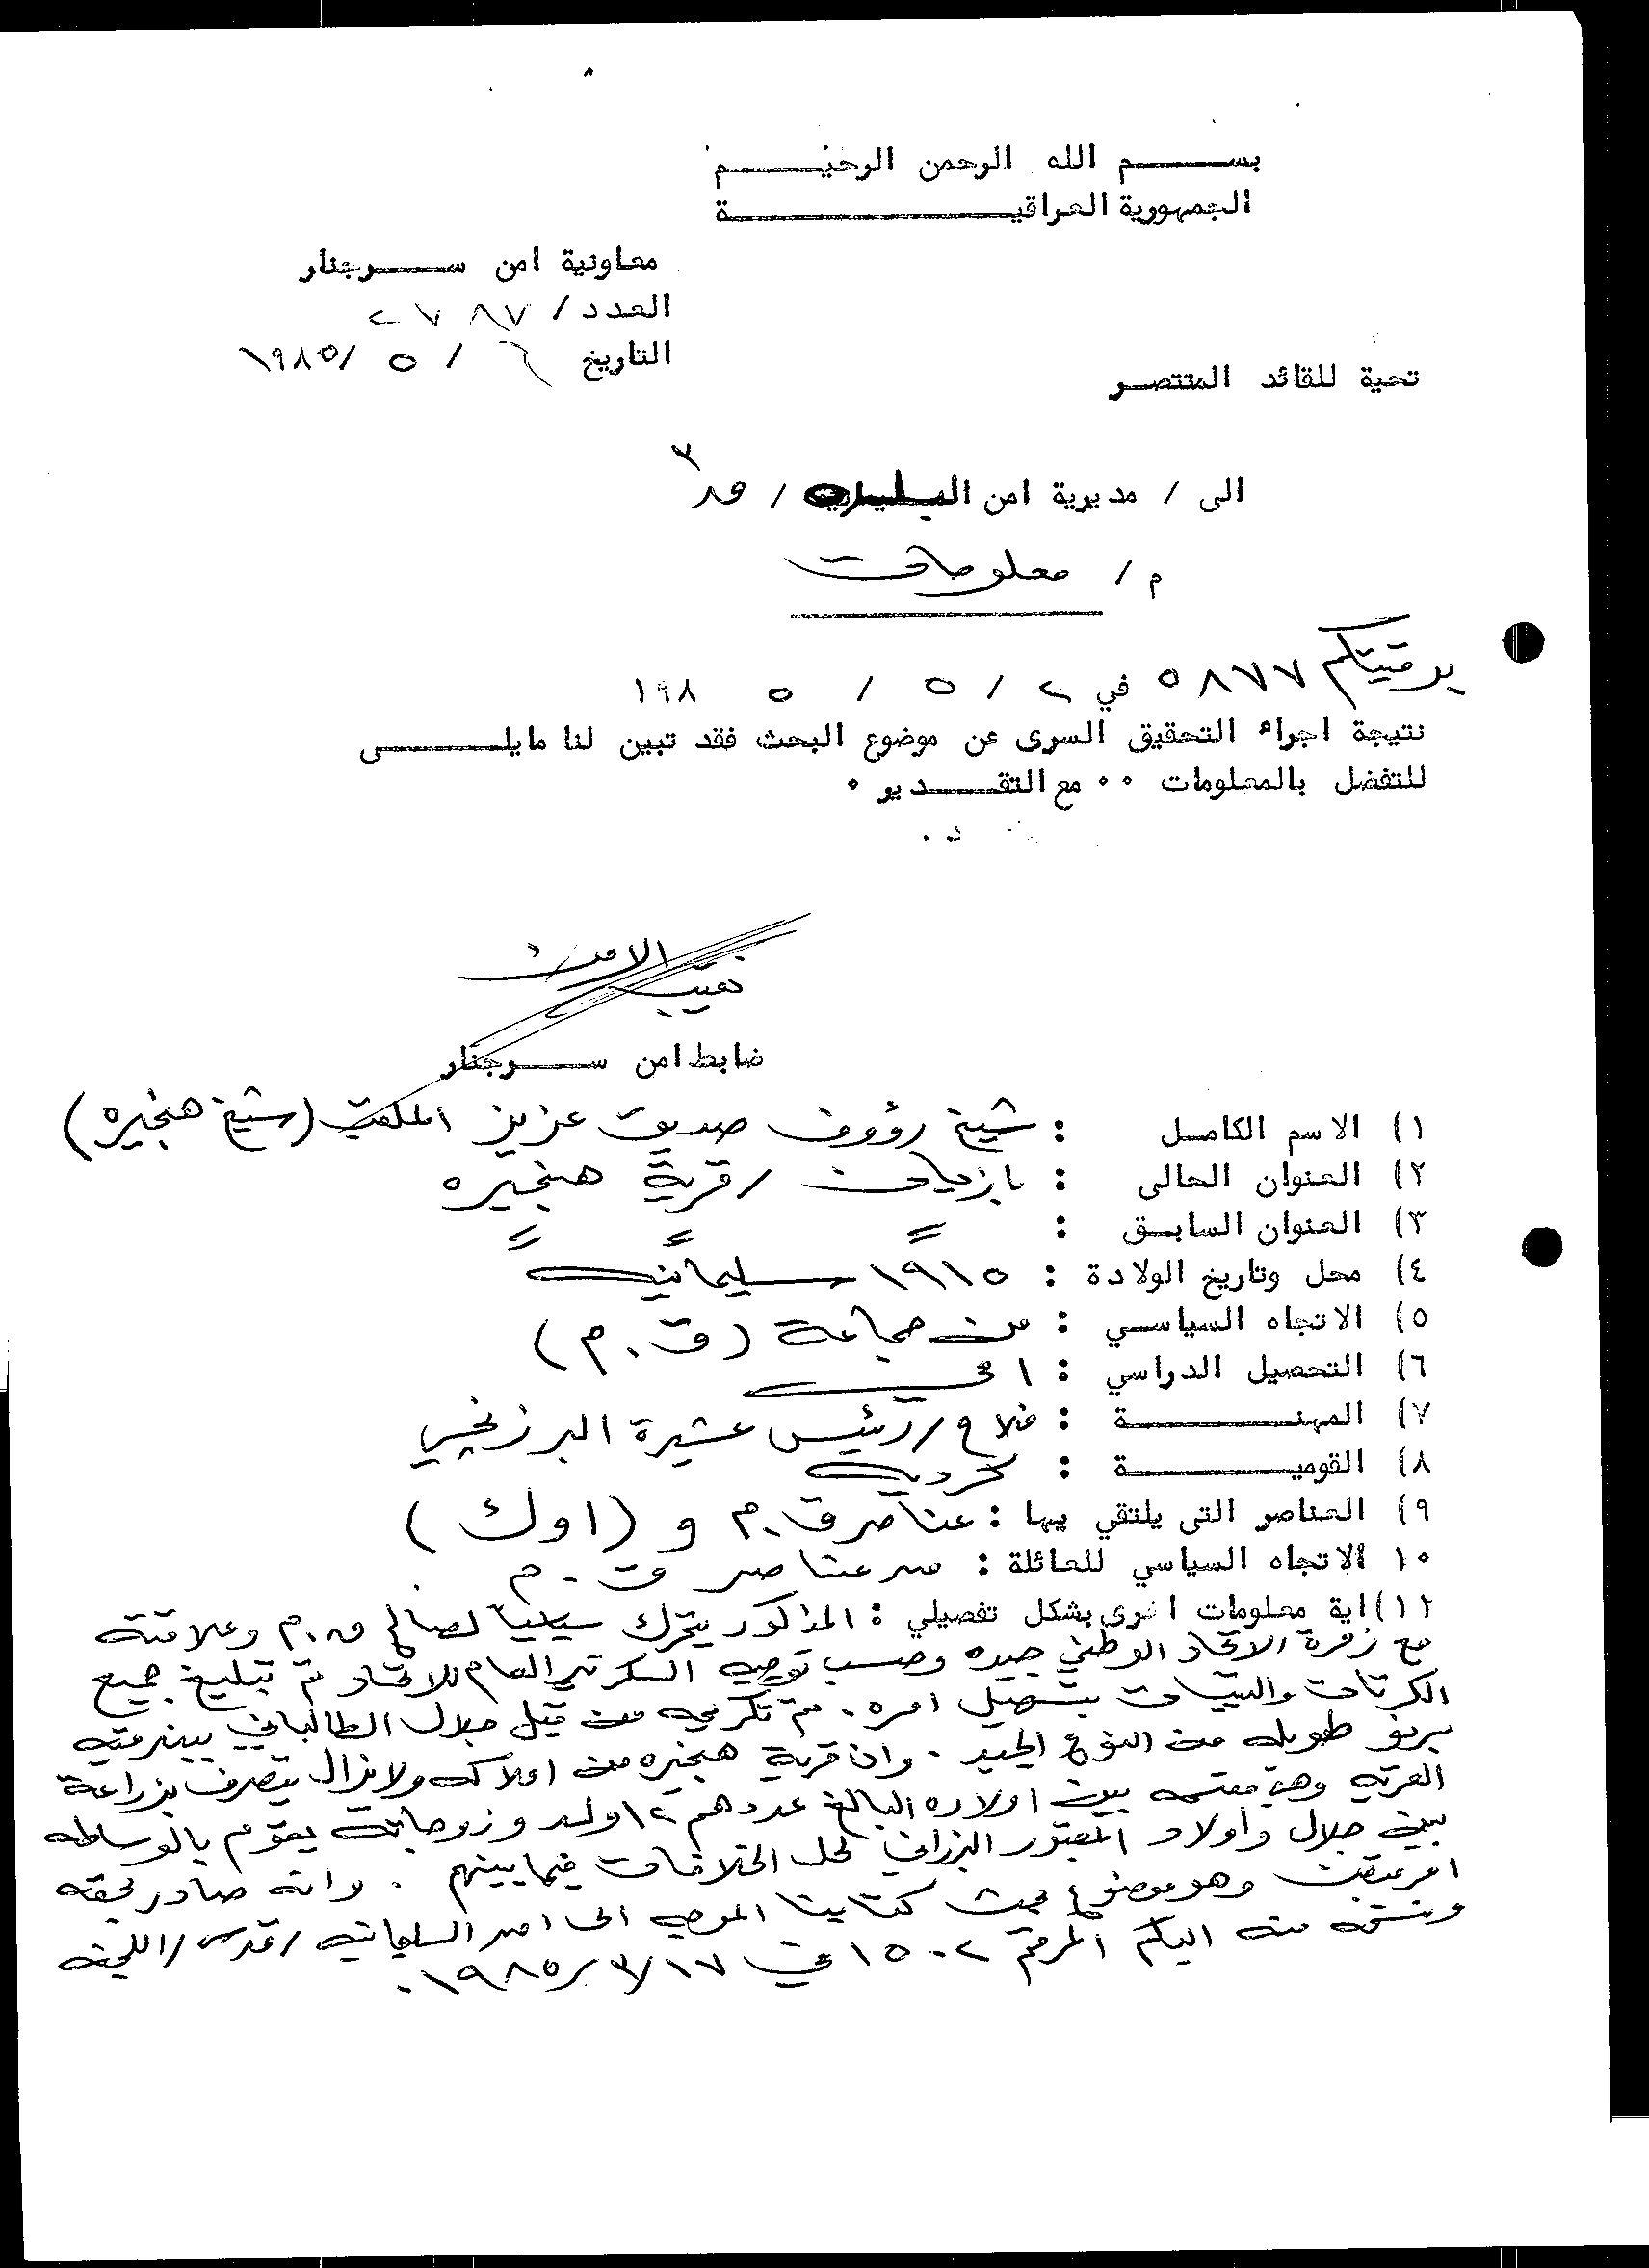 بســـــم الله الرحمن الرحيـــــم
الجمهورية العراقيـــــــــــــة
معاونية امن ســـرجنار
العدد / ٢٧٨٧
التاريخ ٦ / ٥ / ١٩٨٥
تحية للقائد المنتصـر
الى / مديرية امن / ق٣
م / معلومات
برقيتكم ٥٨٧٧ في ٢ / ٥ / ١٩٨٥
نتيجة اجراء التحقيق السرى عن موضوع البحث فقد تبين لنا مايلـــــى
للتفضل بالمعلومات ٠٠ مع التقــــدير ٠
نقيب الامن
ضابط امن ســـرجنار
١) الاسم الكامـل : شيخ رؤوف صديق عزيز الملقب (شيخ هنجيره)
٢) العنوان الحالى : بازيان / قرية هنجيره
٣) العنوان السابـق : = = =
٤) محل وتاريخ الولادة : ١٩١٥ سليمانيه
٥) الاتجاه السياسـي : من جماعة (ق.م)
٦) التحصيل الدراسي : امي
٧) المهنـــــــة : فلاح / رئيس عشيرة البرزنجي
٨) القوميـــــــة : كرديه
٩) العناصر التى يلتقي بها : عناصر ق.م و (اوك)
١٠ الاتجاه السياسي للعائلة : من عناصر ق.م
١١) اية معلومات اخرى بشكل تفصيلي : المذكور يتحرك سياسيا لصالح ق.م وعلاقته
مع زمرة الاتحاد الوطني جيده وحسب توجيه السكرتير العام للاتحاد تم تبليغ جميع
الكرتات والتيبات بتسهيل امره. تم تكريمه من قبل جلال الطالباني ببندقيه
برنو طويله من النوع الجيد. وان قرية هنجيره من املاكه ولا يزال يتصرف بزراعة
القريه وهي مقسمه بين اولاده البالغ عددهم ١٢ ولد وزوجاته يقوم بالوساطه
بين جلال واولاد المقبور البرزاني لحل الخلافات فيما بينهم. وانه صادر بحقه
امر قبض وهو موضوع بحث كتابنا الموجه الى امن السليمانيه / قدس / اللجنه
ونسخه منه اليكم المرقم ١٥٠٢ في ١٧/٣/١٩٨٥.